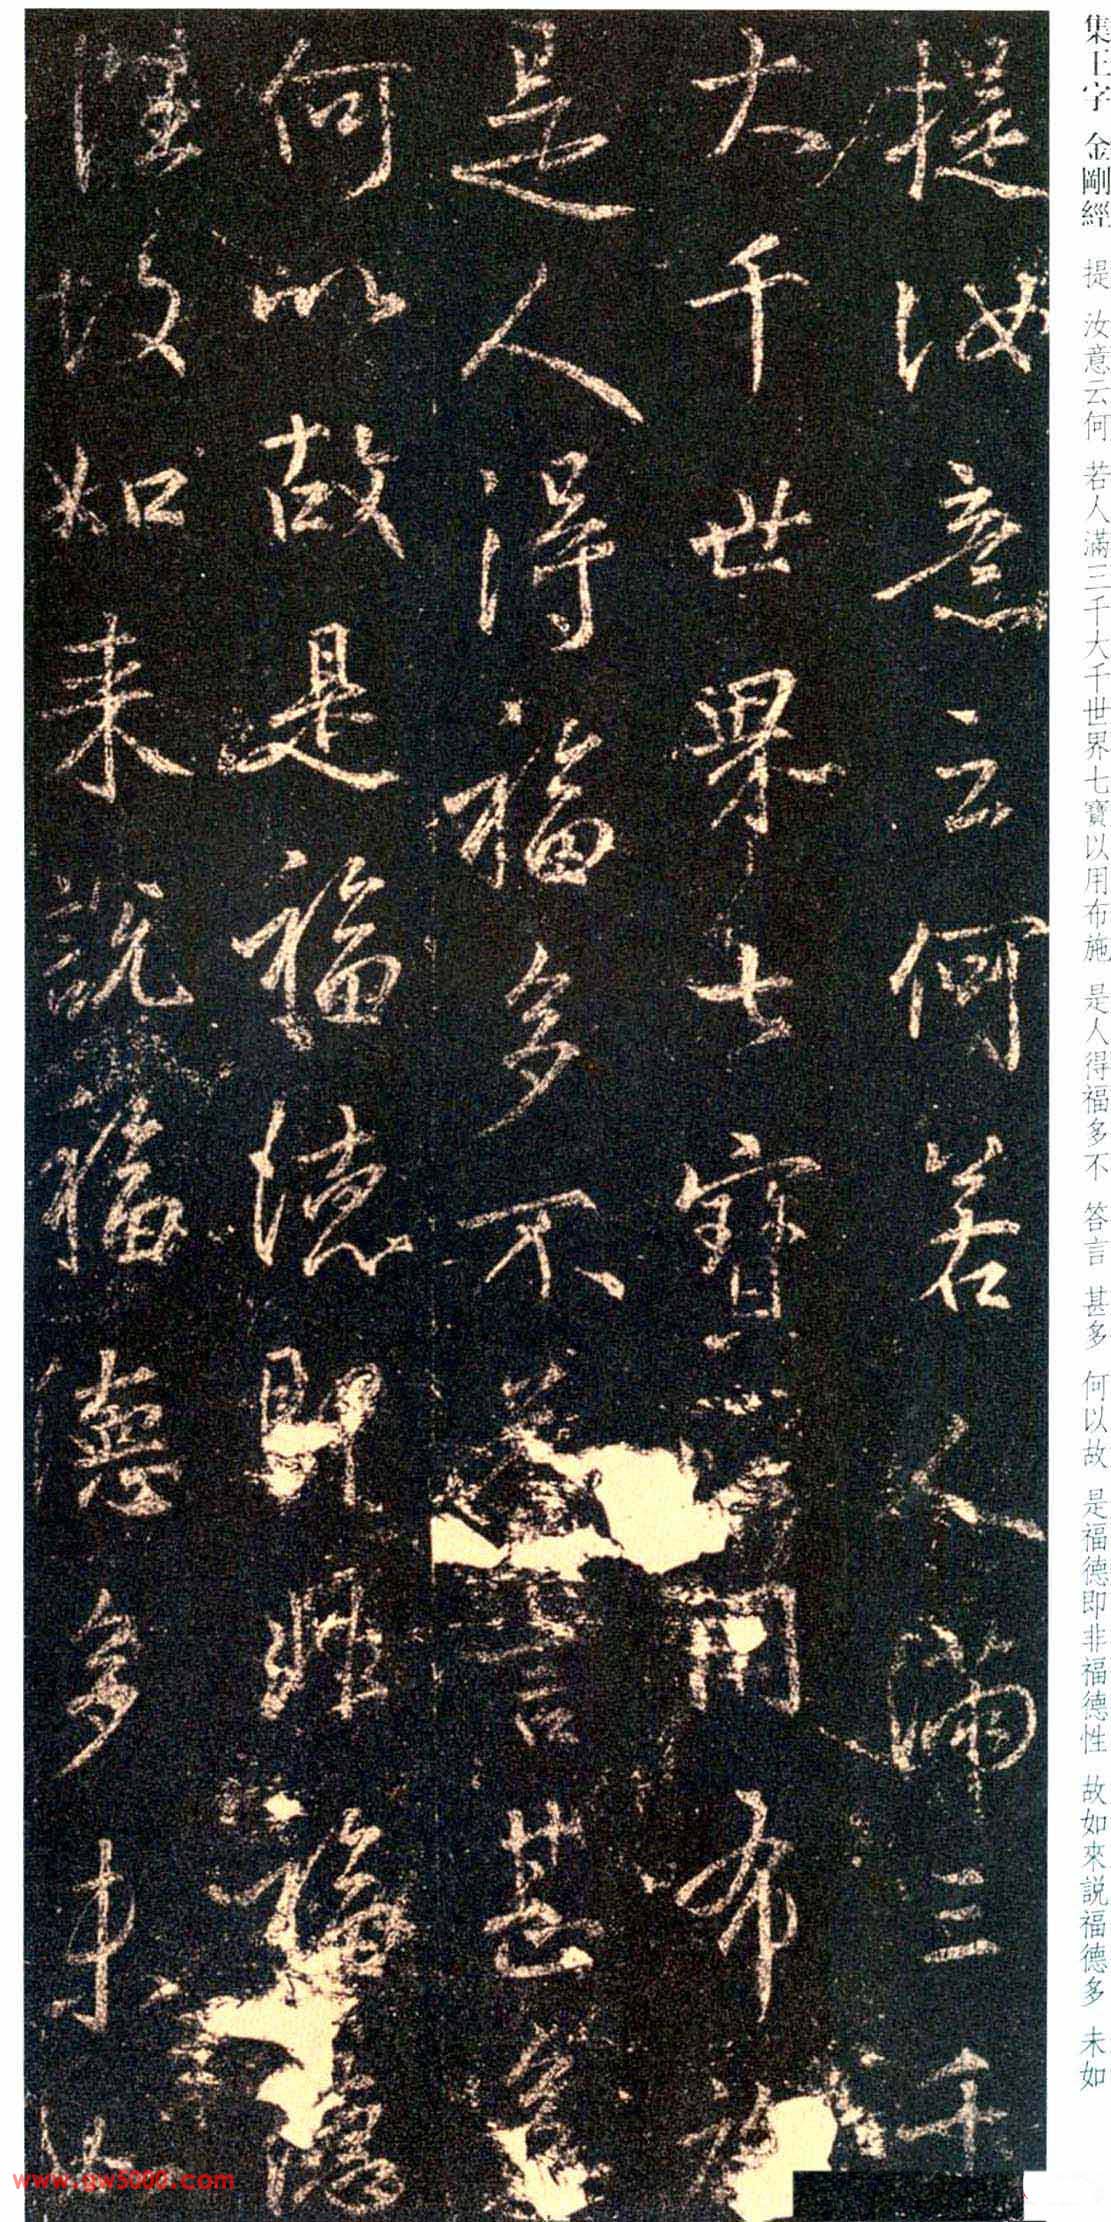 集王字 金剛經 提 汝意云何 若人滿三千大千世界七寶以用布施 是人得福多不 答言 甚多 何以故 是福德即非福德性 故如來説福德多 未如
提汝意云何若人滿三千
大千世界七寶以用布施
是人得福多不答言甚多
何以故是福德即非福德
性故如来說福德多未如
www.gw5000.com